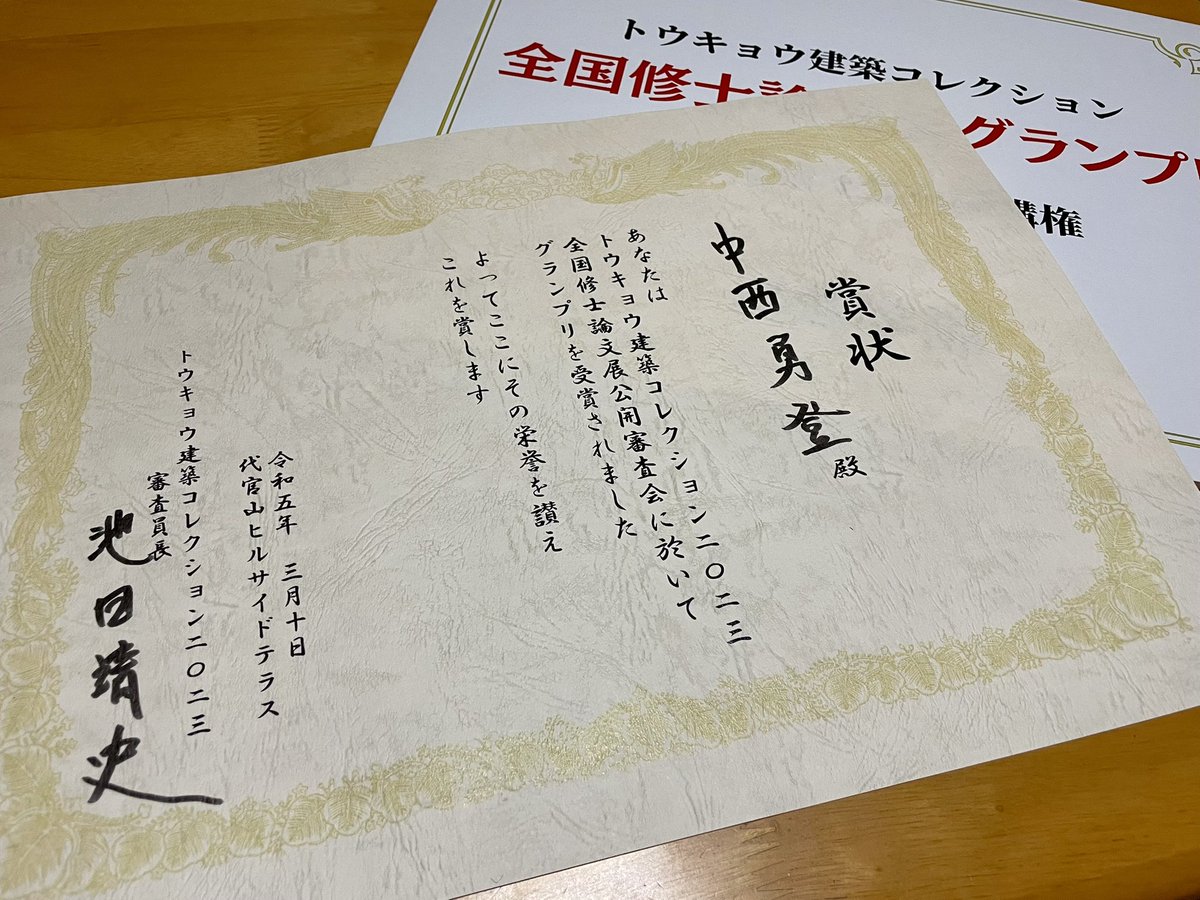 賞状
中西勇登殿
あなたは
トウキョウ建築コレクション二〇二三
全国修士論文展公開審査会に於いて
グランプリを受賞されました
よってここにその栄誉を讃え
これを賞します
令和五年 三月十日
代官山ヒルサイドテラス
トウキョウ建築コレクション二〇二三
審査員長
池田靖史
トウキョウ建築コレクション
全国修士論 グランプリ
講権